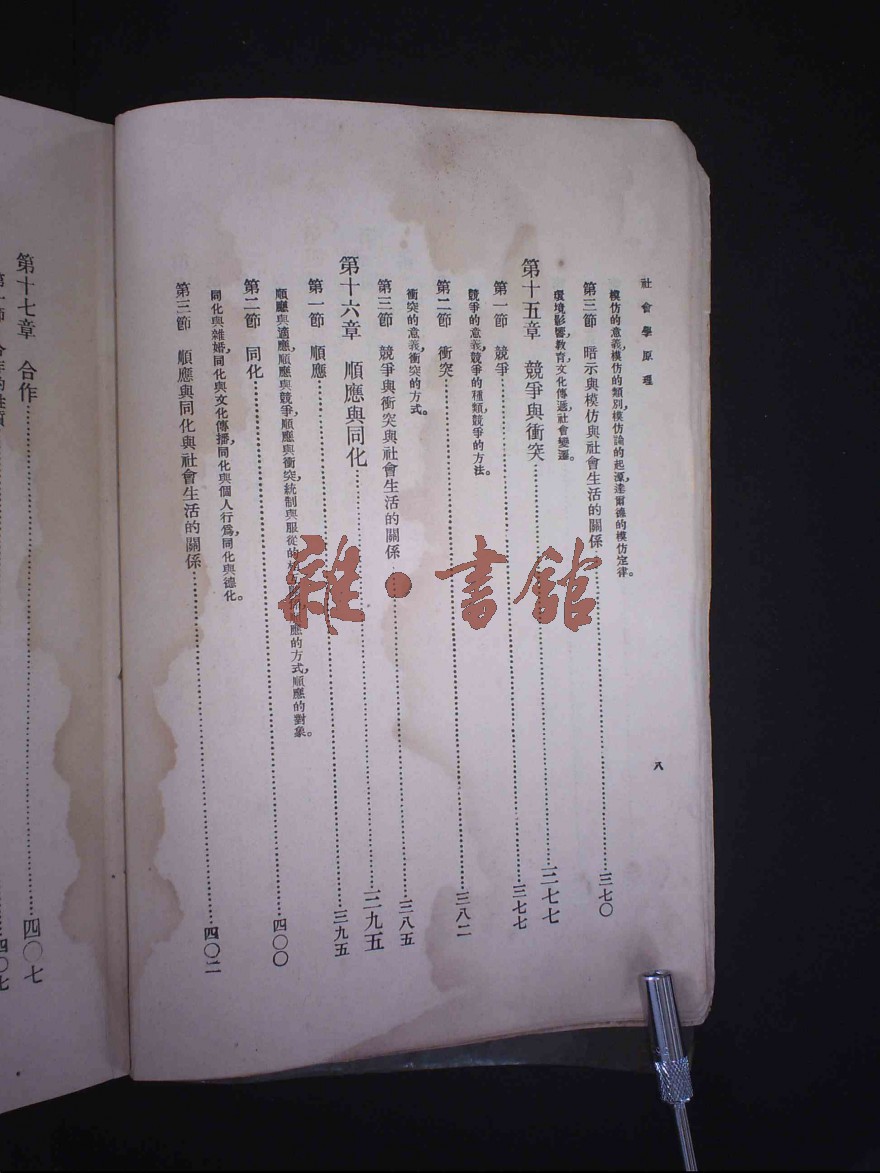 社會學原理
八
模仿的意義,模仿的類別,模仿論的起源,達爾德的模仿定律。
第三節 暗示與模仿與社會生活的關係……三七〇
環境影響,教育,文化傳遞,社會變遷。
第十五章 競爭與衝突……三七七
第一節 競爭……三七七
競爭的意義,競爭的種類,競爭的方法。
第二節 衝突……三八二
衝突的意義,衝突的方式。
第三節 競爭與衝突與社會生活的關係……三八五
第十六章 順應與同化……三九五
第一節 順應……三九五
順應與適應,順應與競爭,順應與衝突,統制與服從的相互關係,順應的方式,順應的對象。
第二節 同化……四〇〇
同化與雜婚,同化與文化傳播,同化與個人行為,同化與德化。
第三節 順應與同化與社會生活的關係……四〇二
第十七章 合作……四〇七
第一節 合作的性質……四〇七
雜·書館